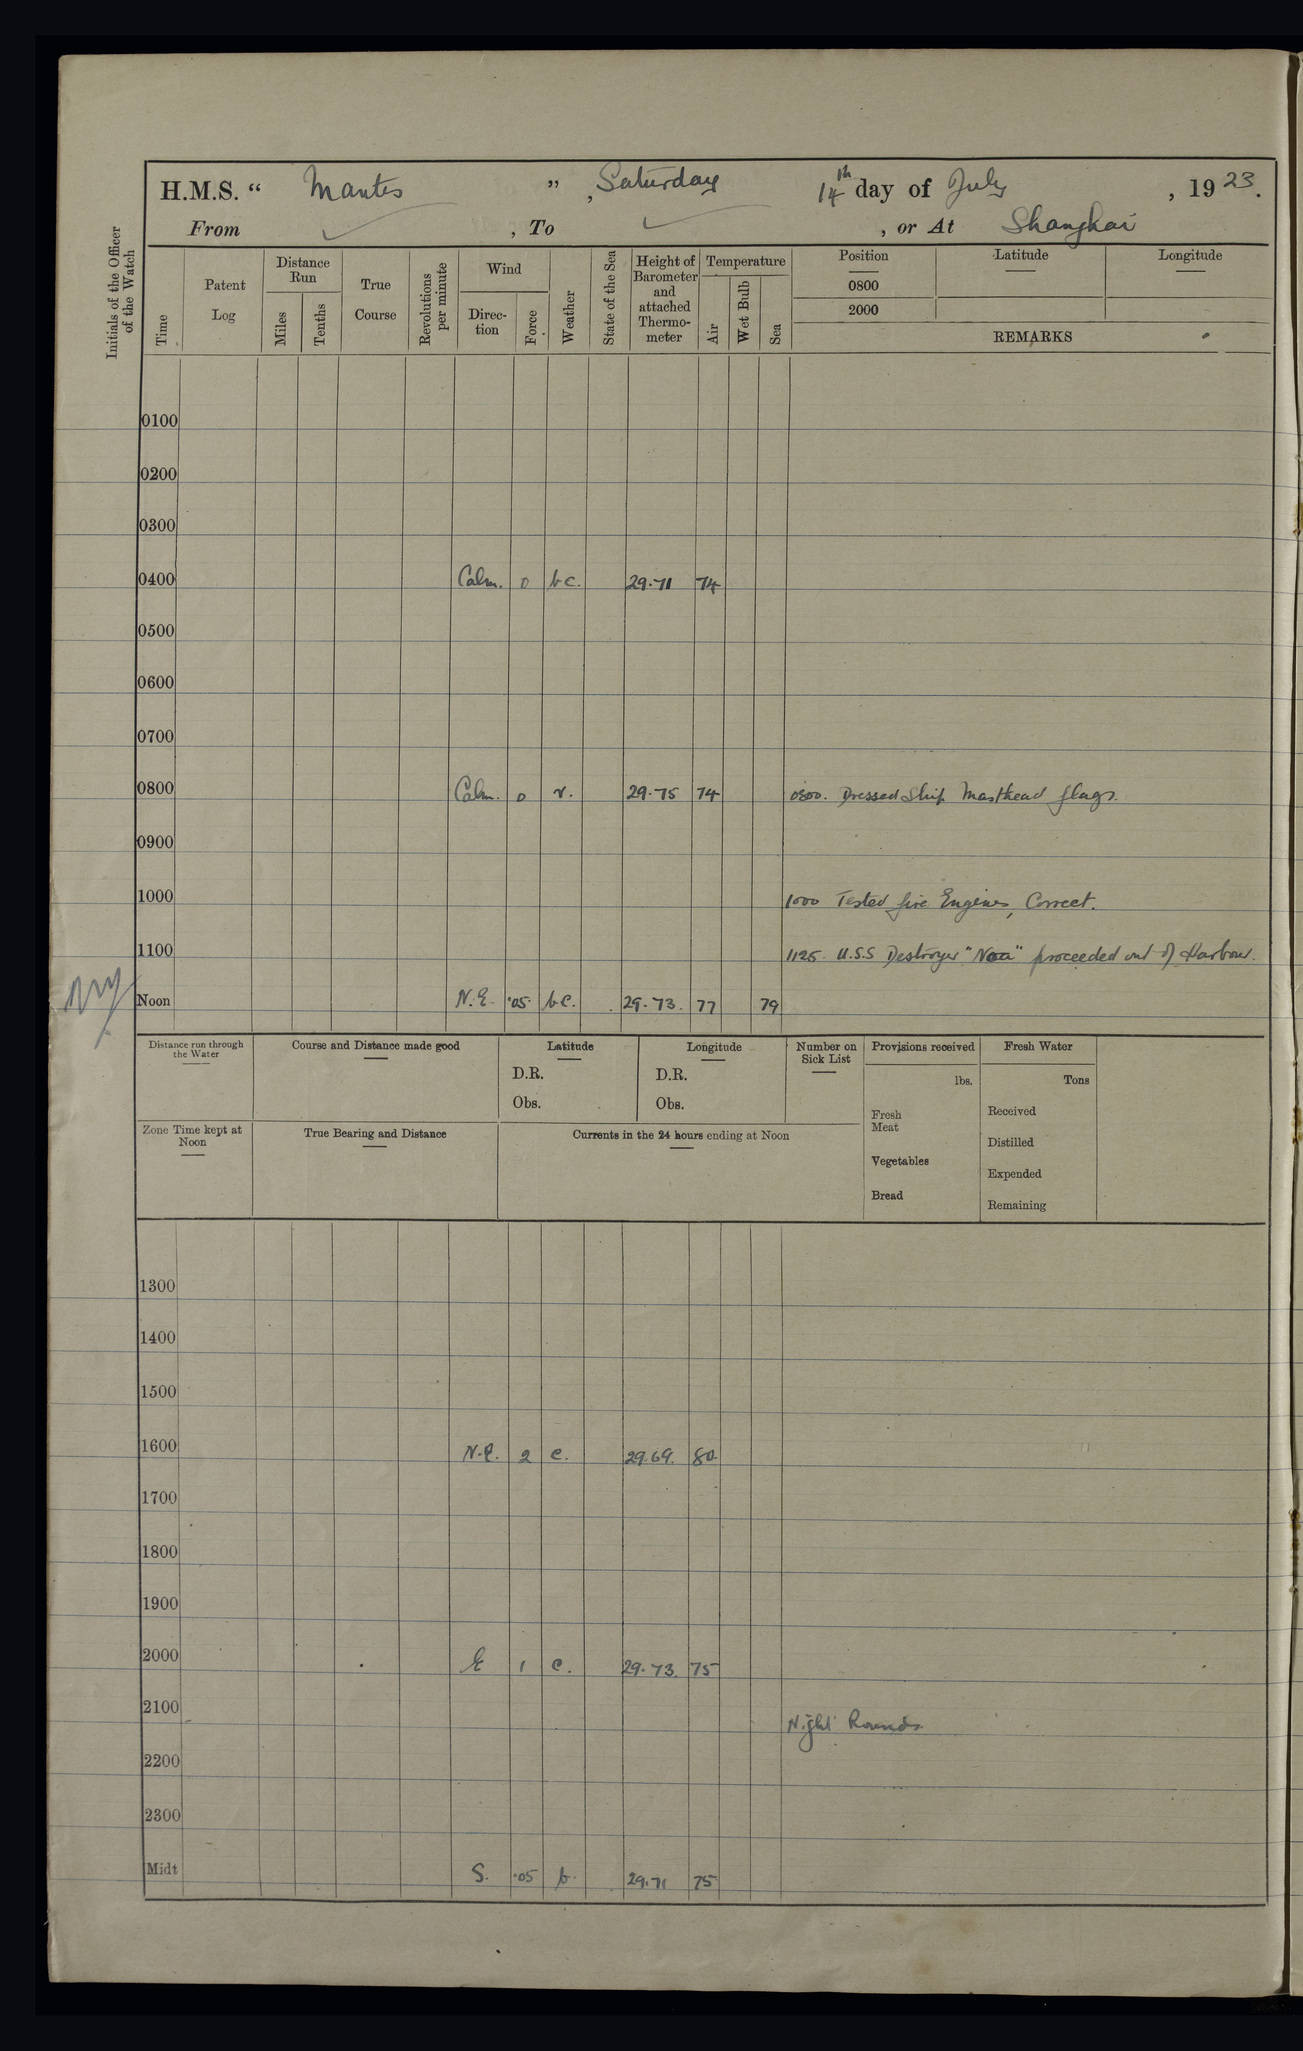 H.M.S. “ Mantis ” , Saturday 14th day of July , 1923.
From ✓ , To ✓ , or At Shanghai
Initials of the Officer of the Watch
Time
Patent Log
Distance Run
Miles
Tenths
True Course
Revolutions per minute
Wind
Direc-tion
Force
Weather
State of the Sea
Height of Barometer and attached Thermo-meter
Temperature
Air
Wet Bulb
Sea
Position
0800
2000
Latitude
Longitude
REMARKS
0100
0200
0300
0400 Calm. 0 bc. 29.71 74
0500
0600
0700
0800 Calm. 0 r. 29.75 74 0800. Dressed Ship Masthead flags.
0900
1000 1000 Tested fire Engines, Correct.
1100 1125. U.S.S Destroyer "Noa" proceeded out of Harbour.
Noon N.E. .05 bc. 29.73. 77 79
Distance run through the Water
Course and Distance made good
Latitude
D.R.
Obs.
Longitude
D.R.
Obs.
Number on Sick List
Provisions received
lbs.
Fresh Meat
Vegetables
Bread
Fresh Water
Tons
Received
Distilled
Expended
Remaining
Zone Time kept at Noon
True Bearing and Distance
Currents in the 24 hours ending at Noon
1300
1400
1500
1600 N.E. 2 c. 29.69. 80
1700
1800
1900
2000 E 1 c. 29.73. 75
2100 Night Rounds
2200
2300
Midt S. .05 b. 29.71 75